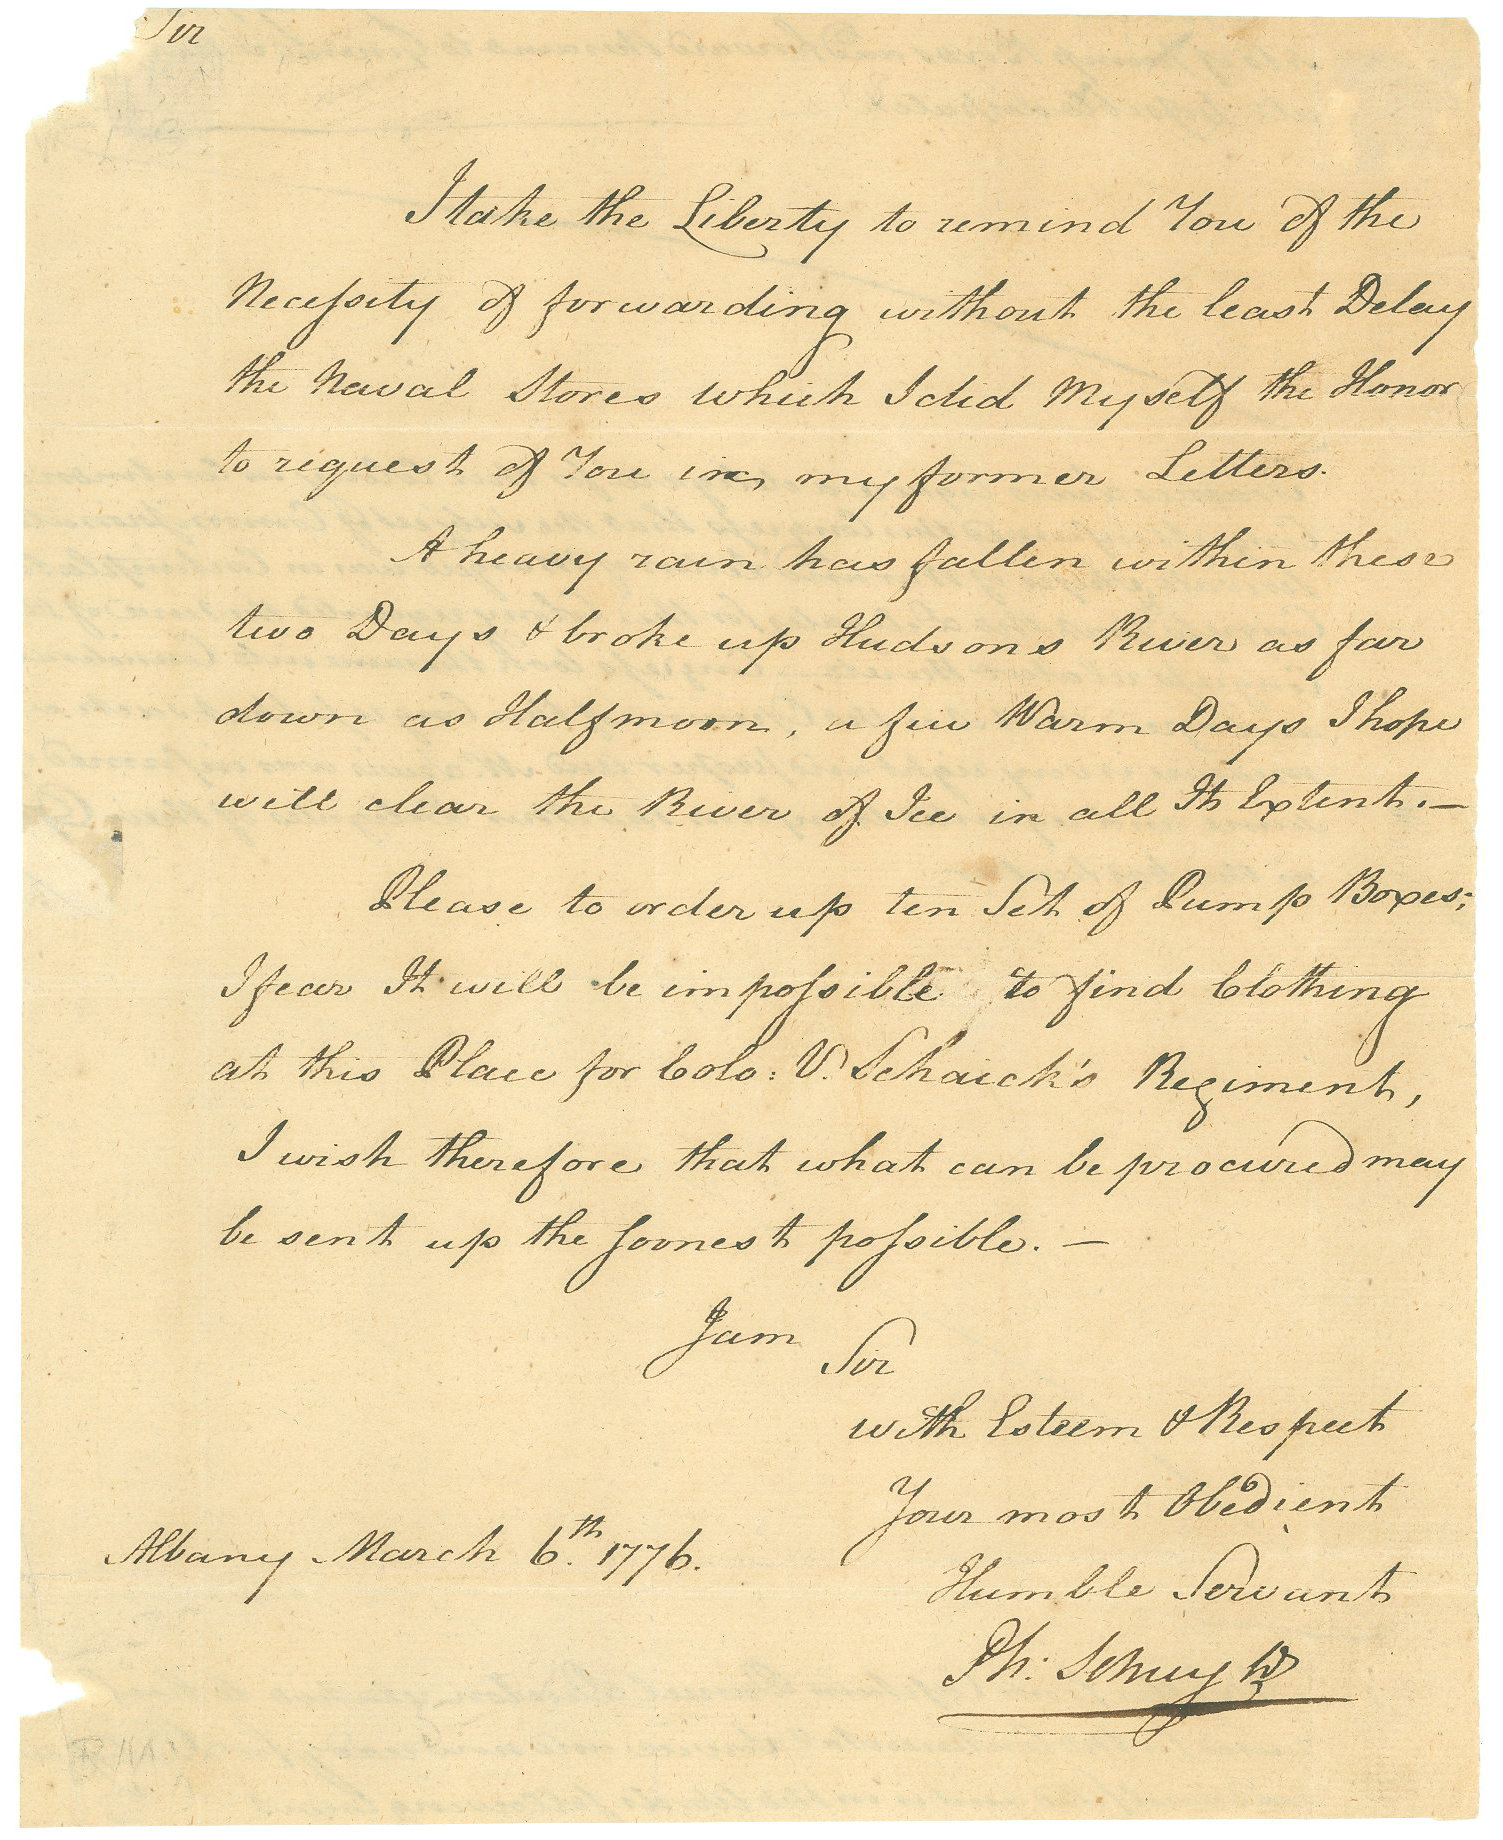 Sir
I take the Liberty to remind You of the
Necessity of forwarding without the least Delay
the Naval Stores which I did Myself the Honor
to request of You in my former Letters.
A heavy rain has fallen within these
two Days & broke up Hudsons River as far
down as Halfmoon, a few Warm Days I hope
will clear the River of Ice in all Its Extent. —
Please to order up ten Set of Pump Boxes;
I fear It will be impossible to find Clothing
at this Place for Colo: V. Schaick's Regiment,
I wish therefore that what can be procured may
be sent up the soonest possible. —
I am Sir
with Esteem & Respect
Your most Obedient
Humble Servant
Albany March 6th. 1776.
Ph: Schuyler